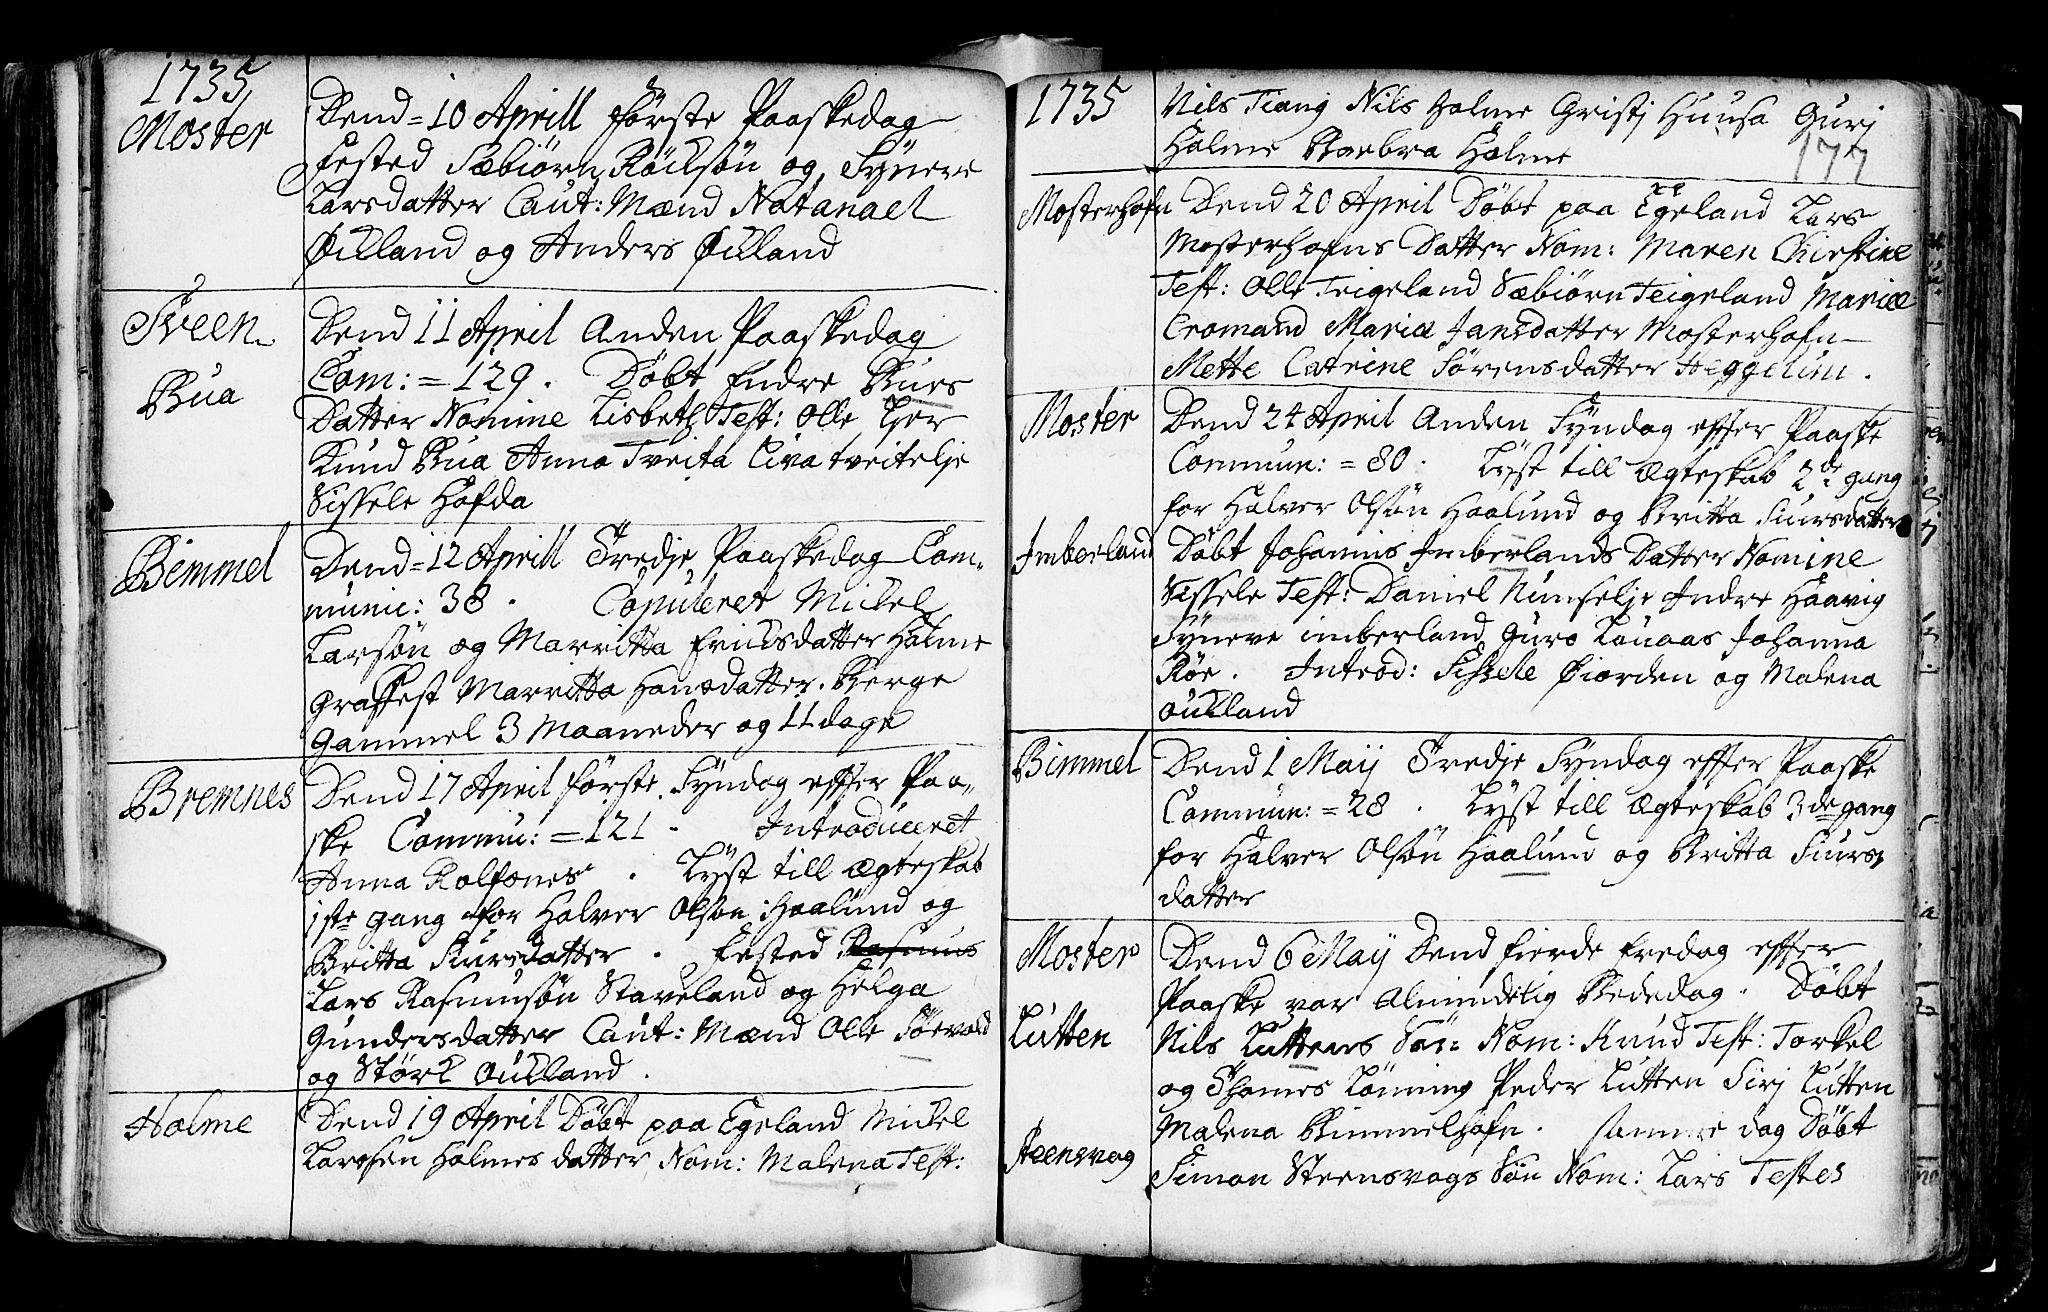 1735
Moster
Dend = 10 Aprill Förste Paaskedag
Fested Sæbiörn Röilsön og Synere
Larsdatter Caut: Mænd Natanael
Øilland og Anders Øilland
Sveen
Bua
Dend 11 April Anden Paaskedag
Com: = 129. Döbt Endre Bues
Datter Nomine Lisbeth Test: Olle Lier
Knud Bua Anna Tveita Civa tveitelje
Sissele Hofda
Bemmel
Dend = 12 Aprill Tredje Paaskedag Com-
munic: 38. Copuleret Mickel
Larsön og Marritta Ericksdatter Holme
Graffest Marritta Hansdatter. Berge
Gammel 3 Maaneder og 11 dage
Bremnes
Dend 17 April förste Syndag effter Paa-
ske Commu: = 121. Introduceret
Anna Rolfsnes. Lyst till Ægteskab
1ste gang for Halver Olson Haalund og
Britta Siursdatter. Fested Rasmus
Lars Rasmusön Staveland og Helga
Gundersdatter Caut: Mænd Olle Söevold
og Störk Oukland.
Holme
Dend 19 April Döbt paa Egeland Mickel
Larssen Holmes datter Nom: Malena Test:
1735
Nils Tiang Nils Holme Gristj Huusa Gurj
Holme Barbra Holme
177
Mosterhofn
Dend 20 April Döbt paa Egeland Lars
Mosterhofns Datter Nom: Maren Chirstine
Test: Olle Teigeland Sæbiörn Teigeland Mariæ
Cromand Maria Jansdatter Mosterhofn
Mette Catrine Sörensdatter Heggelun.
Moster
Dend 24 April Anden Syndag effter Paaske
Commun: = 80. Lyst till Ægteskab 2de gang
for Halver Olsön Haalund og Britta Siursdatter
Imberland
Döbt Johannis Imberlands Datter Nomine
Sissele Test: Daniel Nimselje Indre Haavig
Syneve imberland Guro Lauaas Johanna
Röe. Introd: Sissele Øiorden og Malena
Oukland
Bimmel
Dend 1 Maij Tredje Syndag effter Paaske
Commun: = 28. Lyst till Ægteskab 3de gang
for Halver Olsön Haalund og Britta Siurs-
datter
Moster
Dend 6 Maij Dend Fierde Fredag effter
Paaske var Almindelig Bededag. Döbt
Lutten
Nils Luttens Sön Nom: Knud Test: Torkel
og Thomes Löning Peder Lutten Sirj Lutten
Malena Bimmelhofn. samme dag Döbt
Steensvog
Simon Steensvogs Sön Nom: Lars Testes